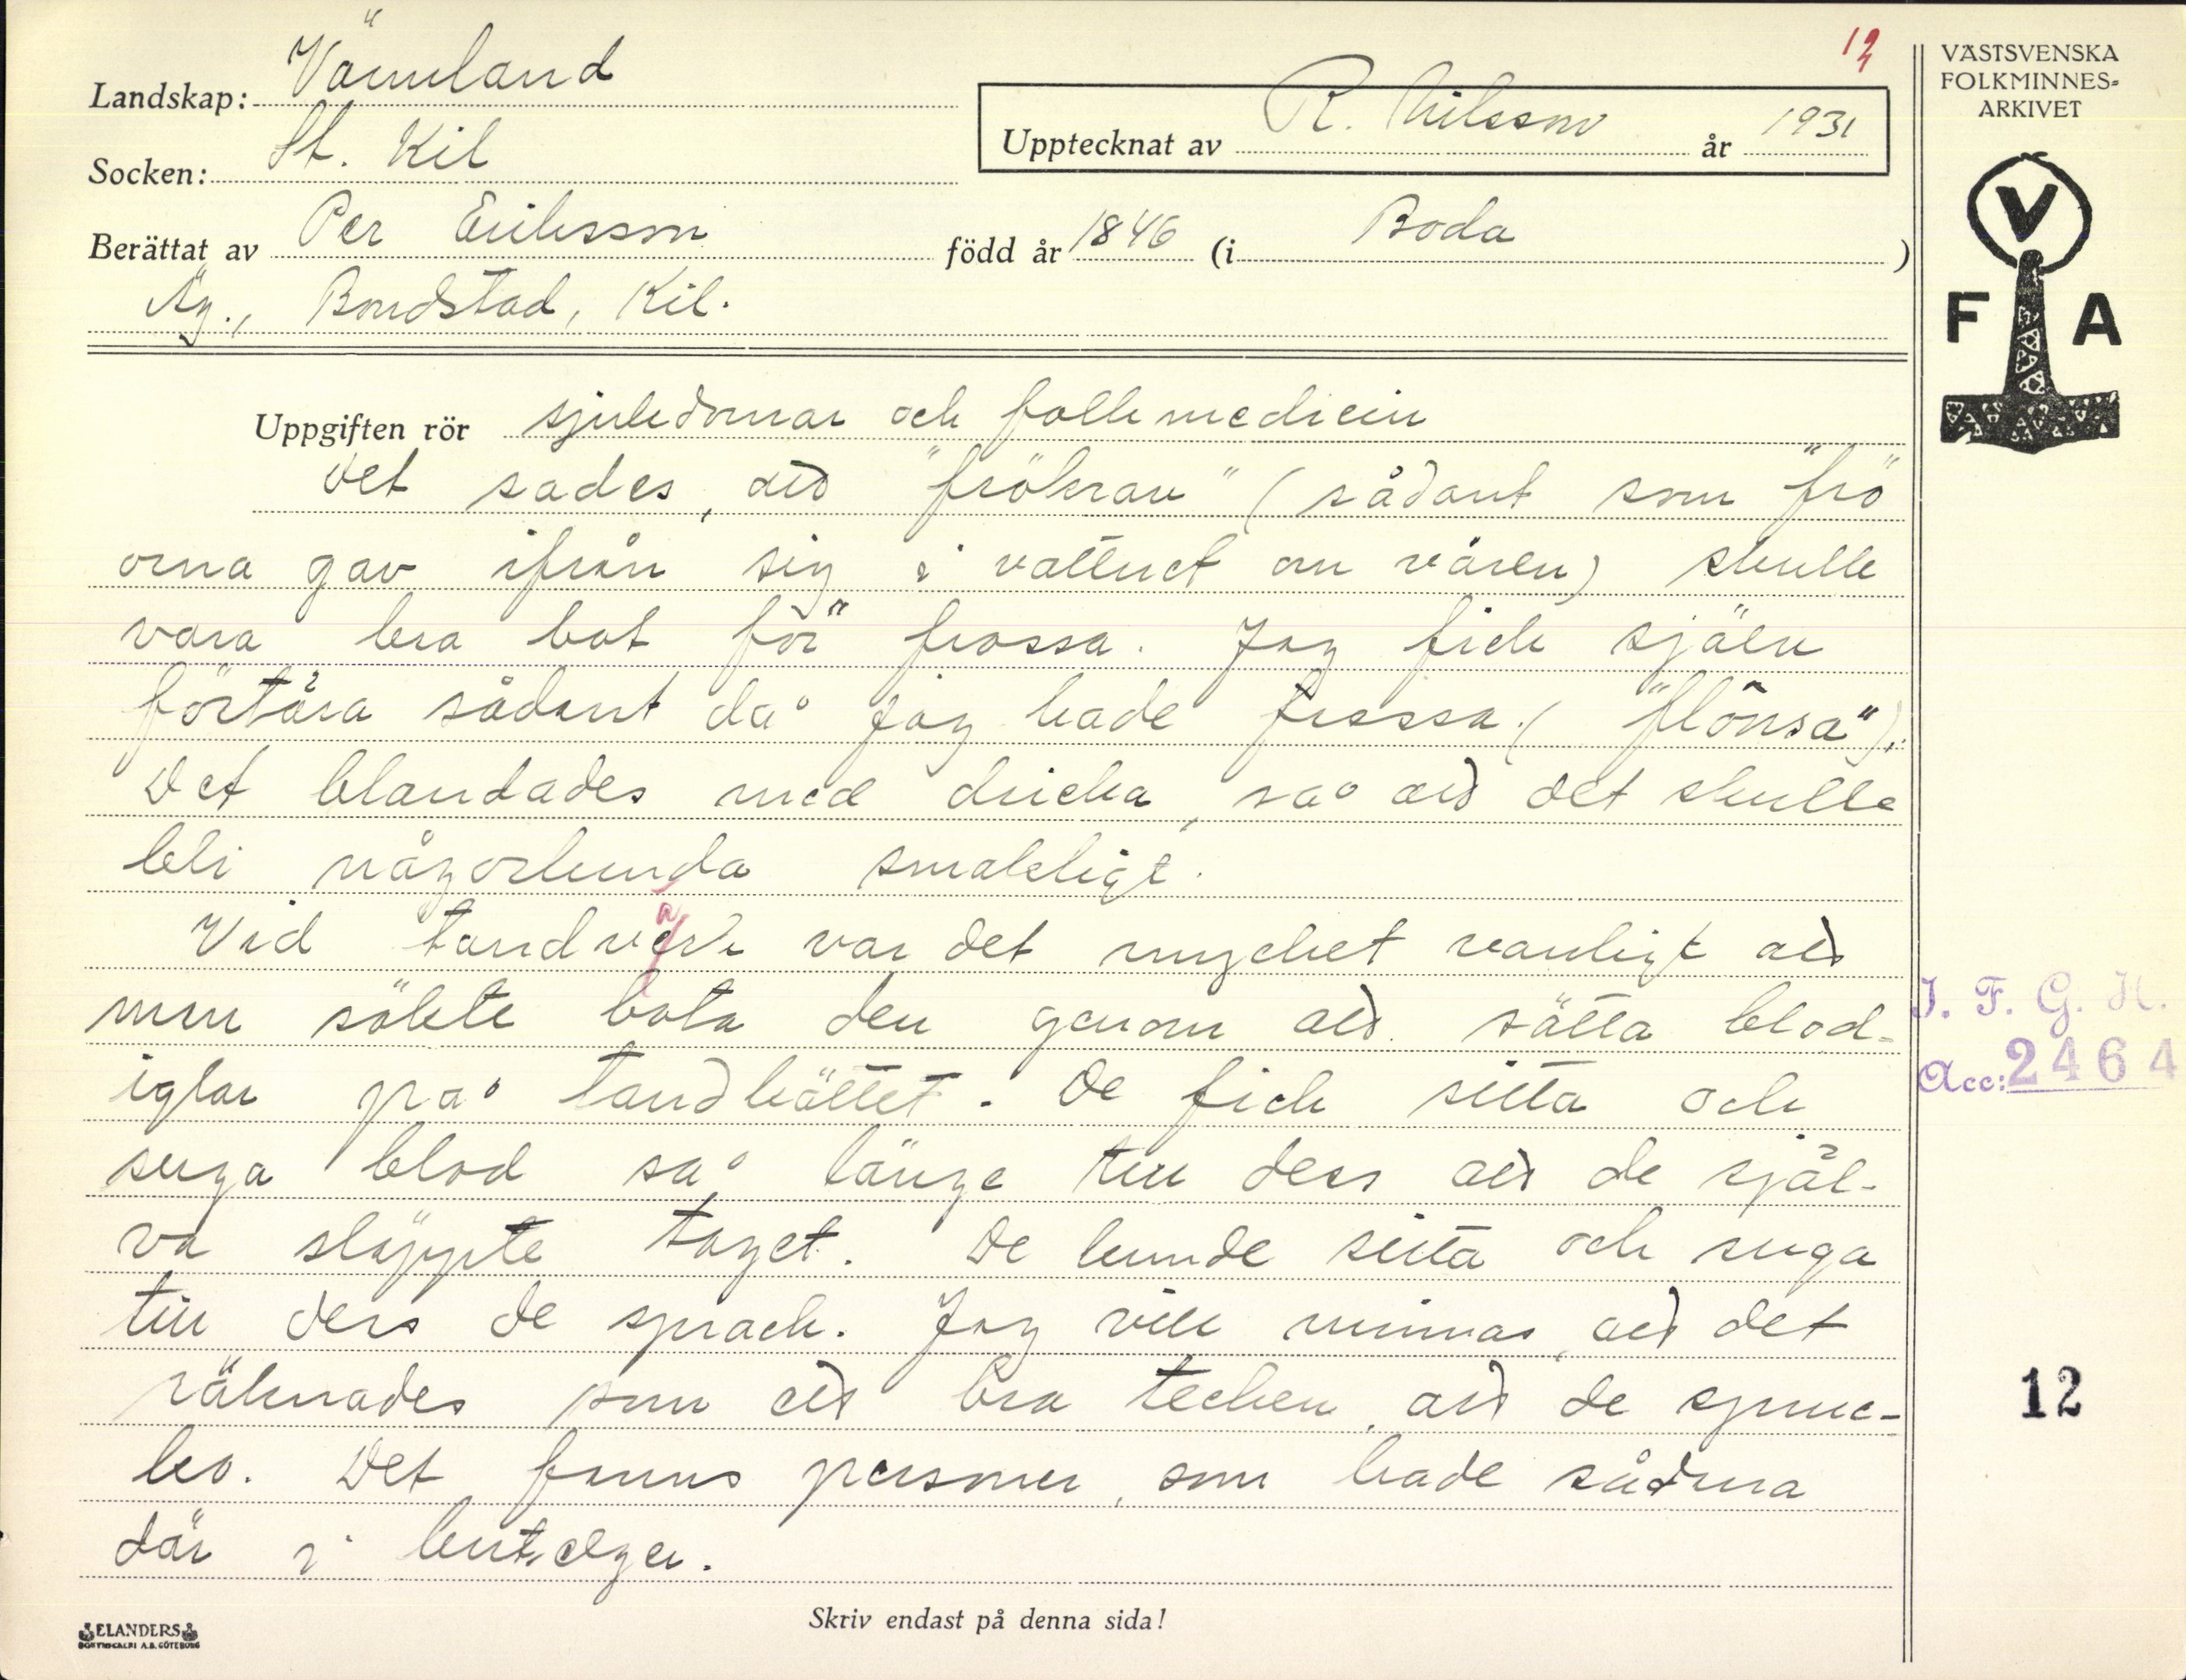 12
Landskap: Värmland
Socken: St. Kil
Upptecknat av R. Nilsson år 1931
Berättat av Per Eriksson född år 1846 (i Boda)
Äg., Bondstad, Kil.
VÄSTSVENSKA
FOLKMINNES-
ARKIVET
V
F A
Uppgiften rör sjukdomar och folkmedicin
Det sades, att "frökran" (sådant som "frö"
orna gav ifrån sig i vattnet om våren) skulle
vara bra bot för" frossa. Jag fick själv
förtära sådant då jag hade frossa ("flönsa").
Det blandades med dricka, så att det skulle
bli någorlunda smakligt.
Vid tandvärk var det mycket vanligt att
man sökte bota den genom att sätta blod-
iglar på tandköttet. De fick sitta och
suga blod så länge till dess att de själ-
va släppte taget. De kunde sitta och suga
till dess de sprack. Jag vill minnas, att det
räknades som ett bra tecken, att de spruc-
ko. Det fanns personer, som hade sådana
där i buteljer.
I. F. G. H.
Acc: 2464
12
Skriv endast på denna sida!
ELANDERS
BOKTRYCKERI A.B. GÖTEBORG